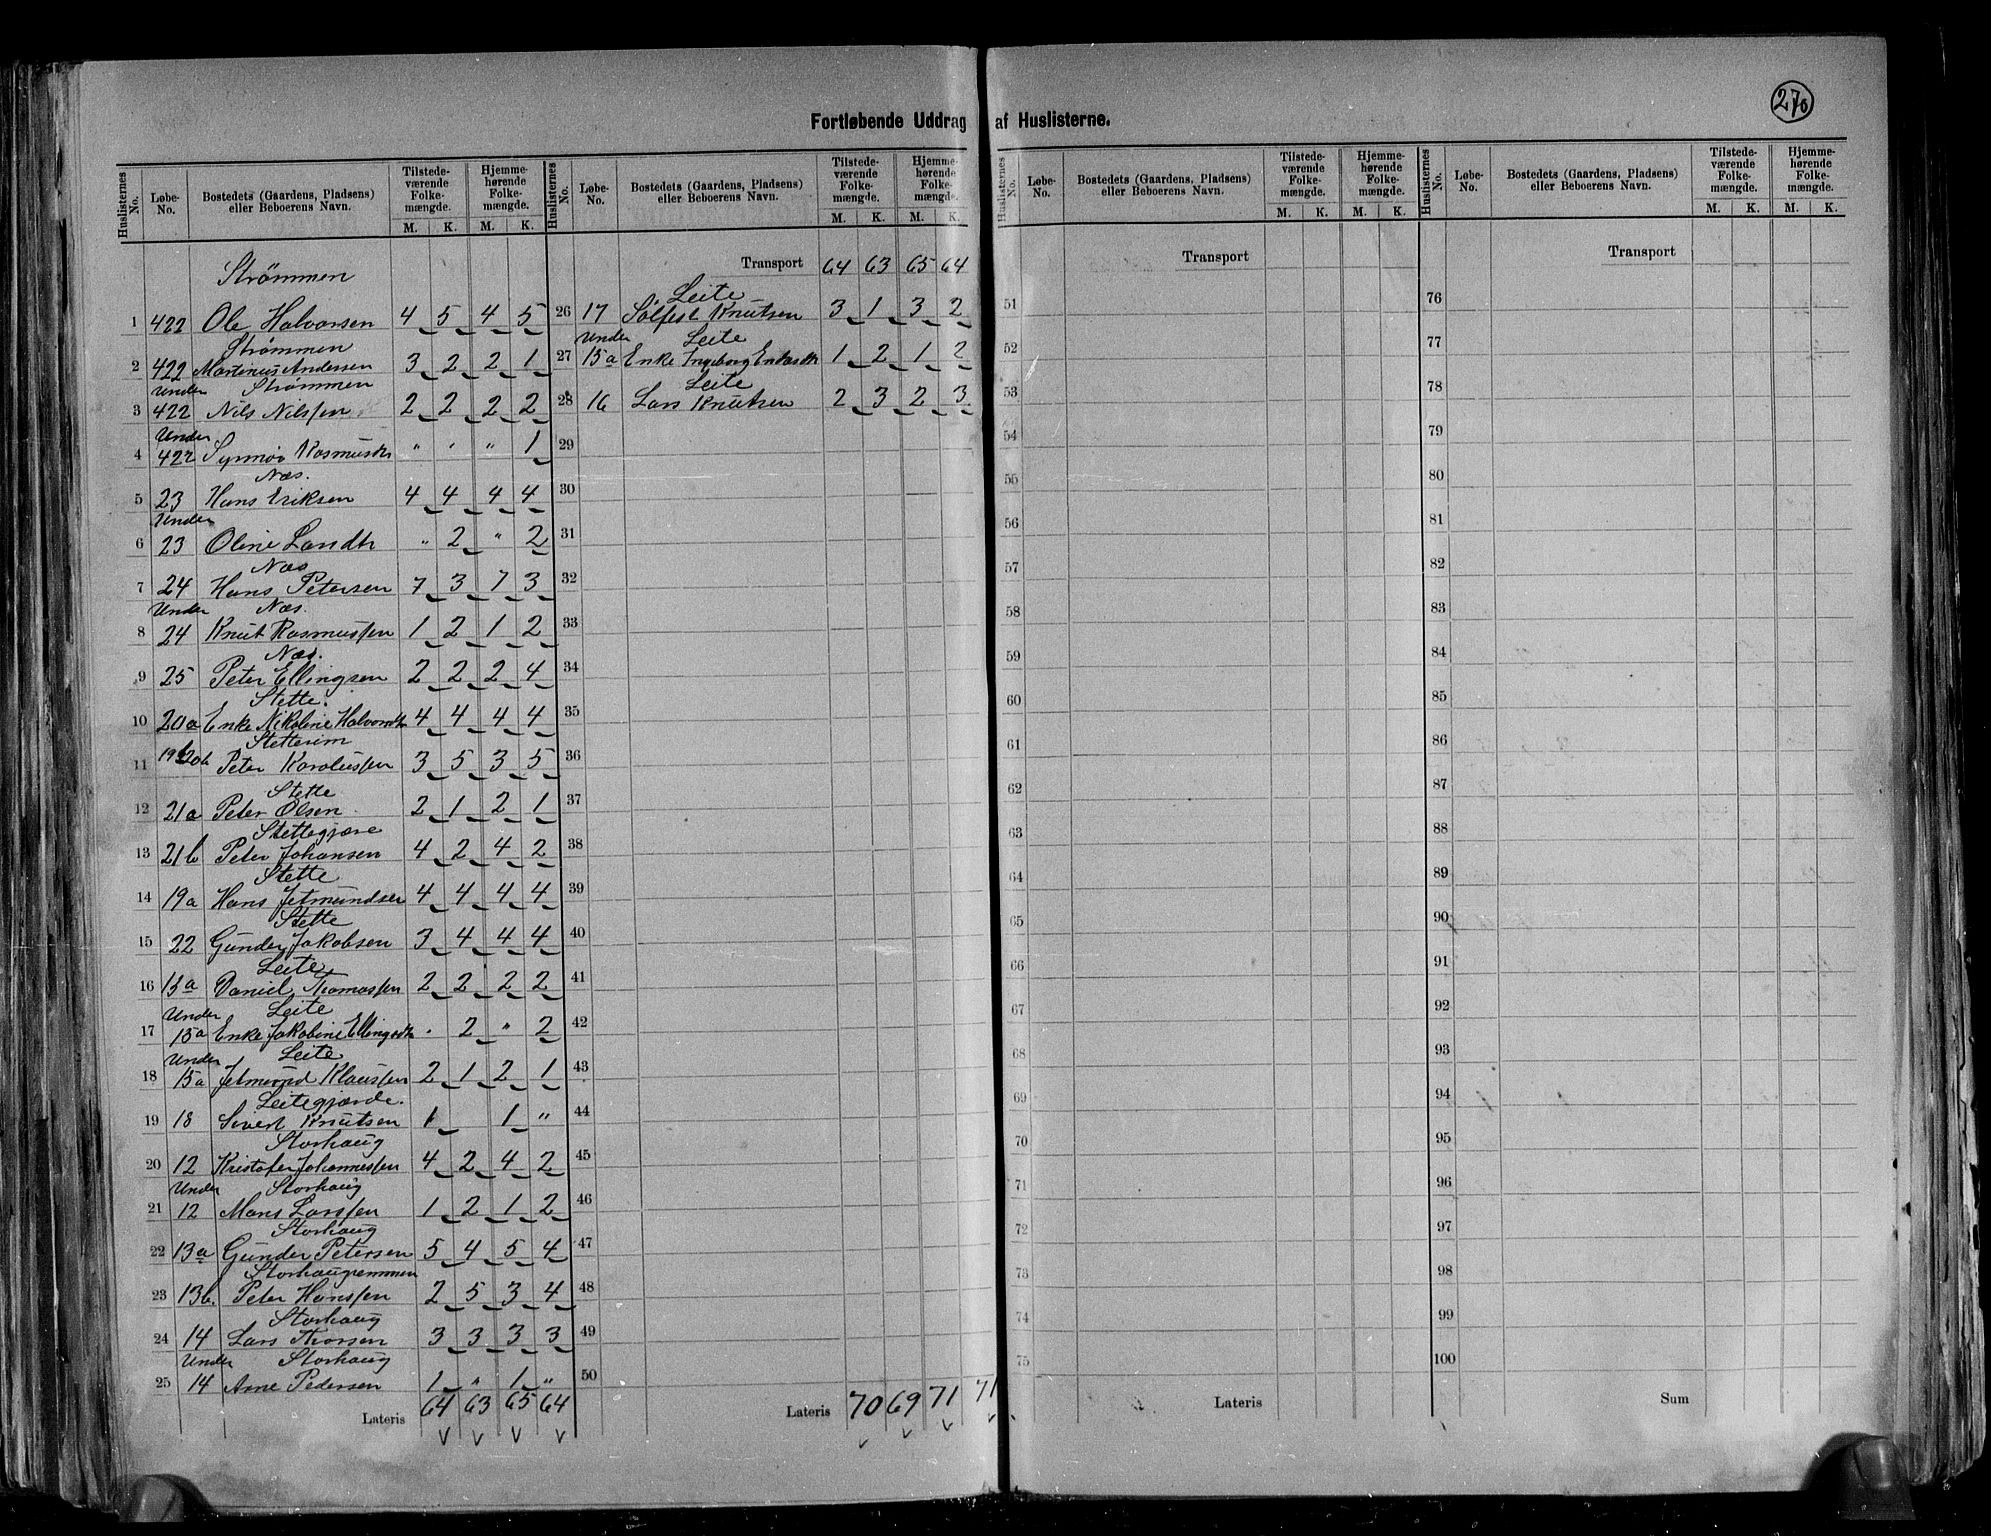 270
Fortløbende Uddrag af Huslisterne.
Huslisternes No. Løbe-No. Bostedets (Gaardens, Pladsens) eller Beboerens Navn. Tilstedeværende Folkemængde. M. K. Hjemmehørende Folkemængde. M. K.
Strømmen
1 422 Ole Halvorsen 4 5 4 5
Strømmen
2 422 Martinus Andersen 3 2 2 1
Under Strømmen
3 422 Nils Nilssen 2 2 2 2
Under
4 422 Synnøv Rasmusdtr " " " 1
Næs.
5 23 Hans Eriksen 4 4 4 4
Under
6 23 Oline Larsdtr " 2 " 2
Næs
7 24 Hans Petersen 7 3 7 3
Under Næs.
8 24 Knut Rasmussen 1 2 1 2
Næs.
9 25 Peter Ellingsen 2 2 2 4
Stette.
10 20a Enke Nikoline Halvorsdtr 4 4 4 4
Stetterim
11 19b 20b Peter Karolussen 3 5 3 5
Stette
12 21a Peter Olsen 2 1 2 1
Stettegjære
13 21b Peter Johansen 4 2 4 2
Stette
14 19a Hans Jetmundsen 4 4 4 4
Stette
15 22 Gunder Jakobsen 3 4 4 4
Leite
16 15a Daniel Thomassen 2 2 2 2
Under Leite
17 15a Enke Jakobine Ellingsdtr " 2 " 2
Under Leite
18 15a Jetmund Klaussen 2 1 2 1
Leitegjærde.
19 18 Sivert Knutsen 1 1 "
Storhaug
20 12 Kristofer Johannessen 4 2 4 2
Under Storhaug
21 12 Mons Larssen 1 2 1 2
Storhaug
22 13a Gunder Petersen 5 4 5 4
Storhaugremmen
23 13b. Peter Hanssen 2 5 3 4
Storhaug
24 14 Lars Thorsen 3 3 3 3
Under Storhaug
25 14 Arne Pedersen 1 " 1 "
Lateris 64 63 65 64
Huslisternes No. Løbe-No. Bostedets (Gaardens, Pladsens) eller Beboerens Navn. Tilstedeværende Folkemængde. M. K. Hjemmehørende Folkemængde. M. K.
Transport 64 63 65 64
Leite
26 17 Sølfest Knutsen 3 1 3 2
Under Leite
27 15a Enke Ingeborg Eriksdtr 1 2 1 2
Leite
28 16 Lars Knutsen 2 3 2 3
29
30
31
32
33
34
35
36
37
38
39
40
41
42
43
44
45
46
47
48
49
50
Lateris 70 69 71 71
Huslisternes No. Løbe-No. Bostedets (Gaardens, Pladsens) eller Beboerens Navn. Tilstedeværende Folkemængde. M. K. Hjemmehørende Folkemængde. M. K.
Transport
51
52
53
54
55
56
57
58
59
60
61
62
63
64
65
66
67
68
69
70
71
72
73
74
75
Lateris
Huslisternes No. Løbe-No. Bostedets (Gaardens, Pladsens) eller Beboerens Navn. Tilstedeværende Folkemængde. M. K. Hjemmehørende Folkemængde. M. K.
Transport
76
77
78
79
80
81
82
83
84
85
86
87
88
89
90
91
92
93
94
95
96
97
98
99
100
Sum